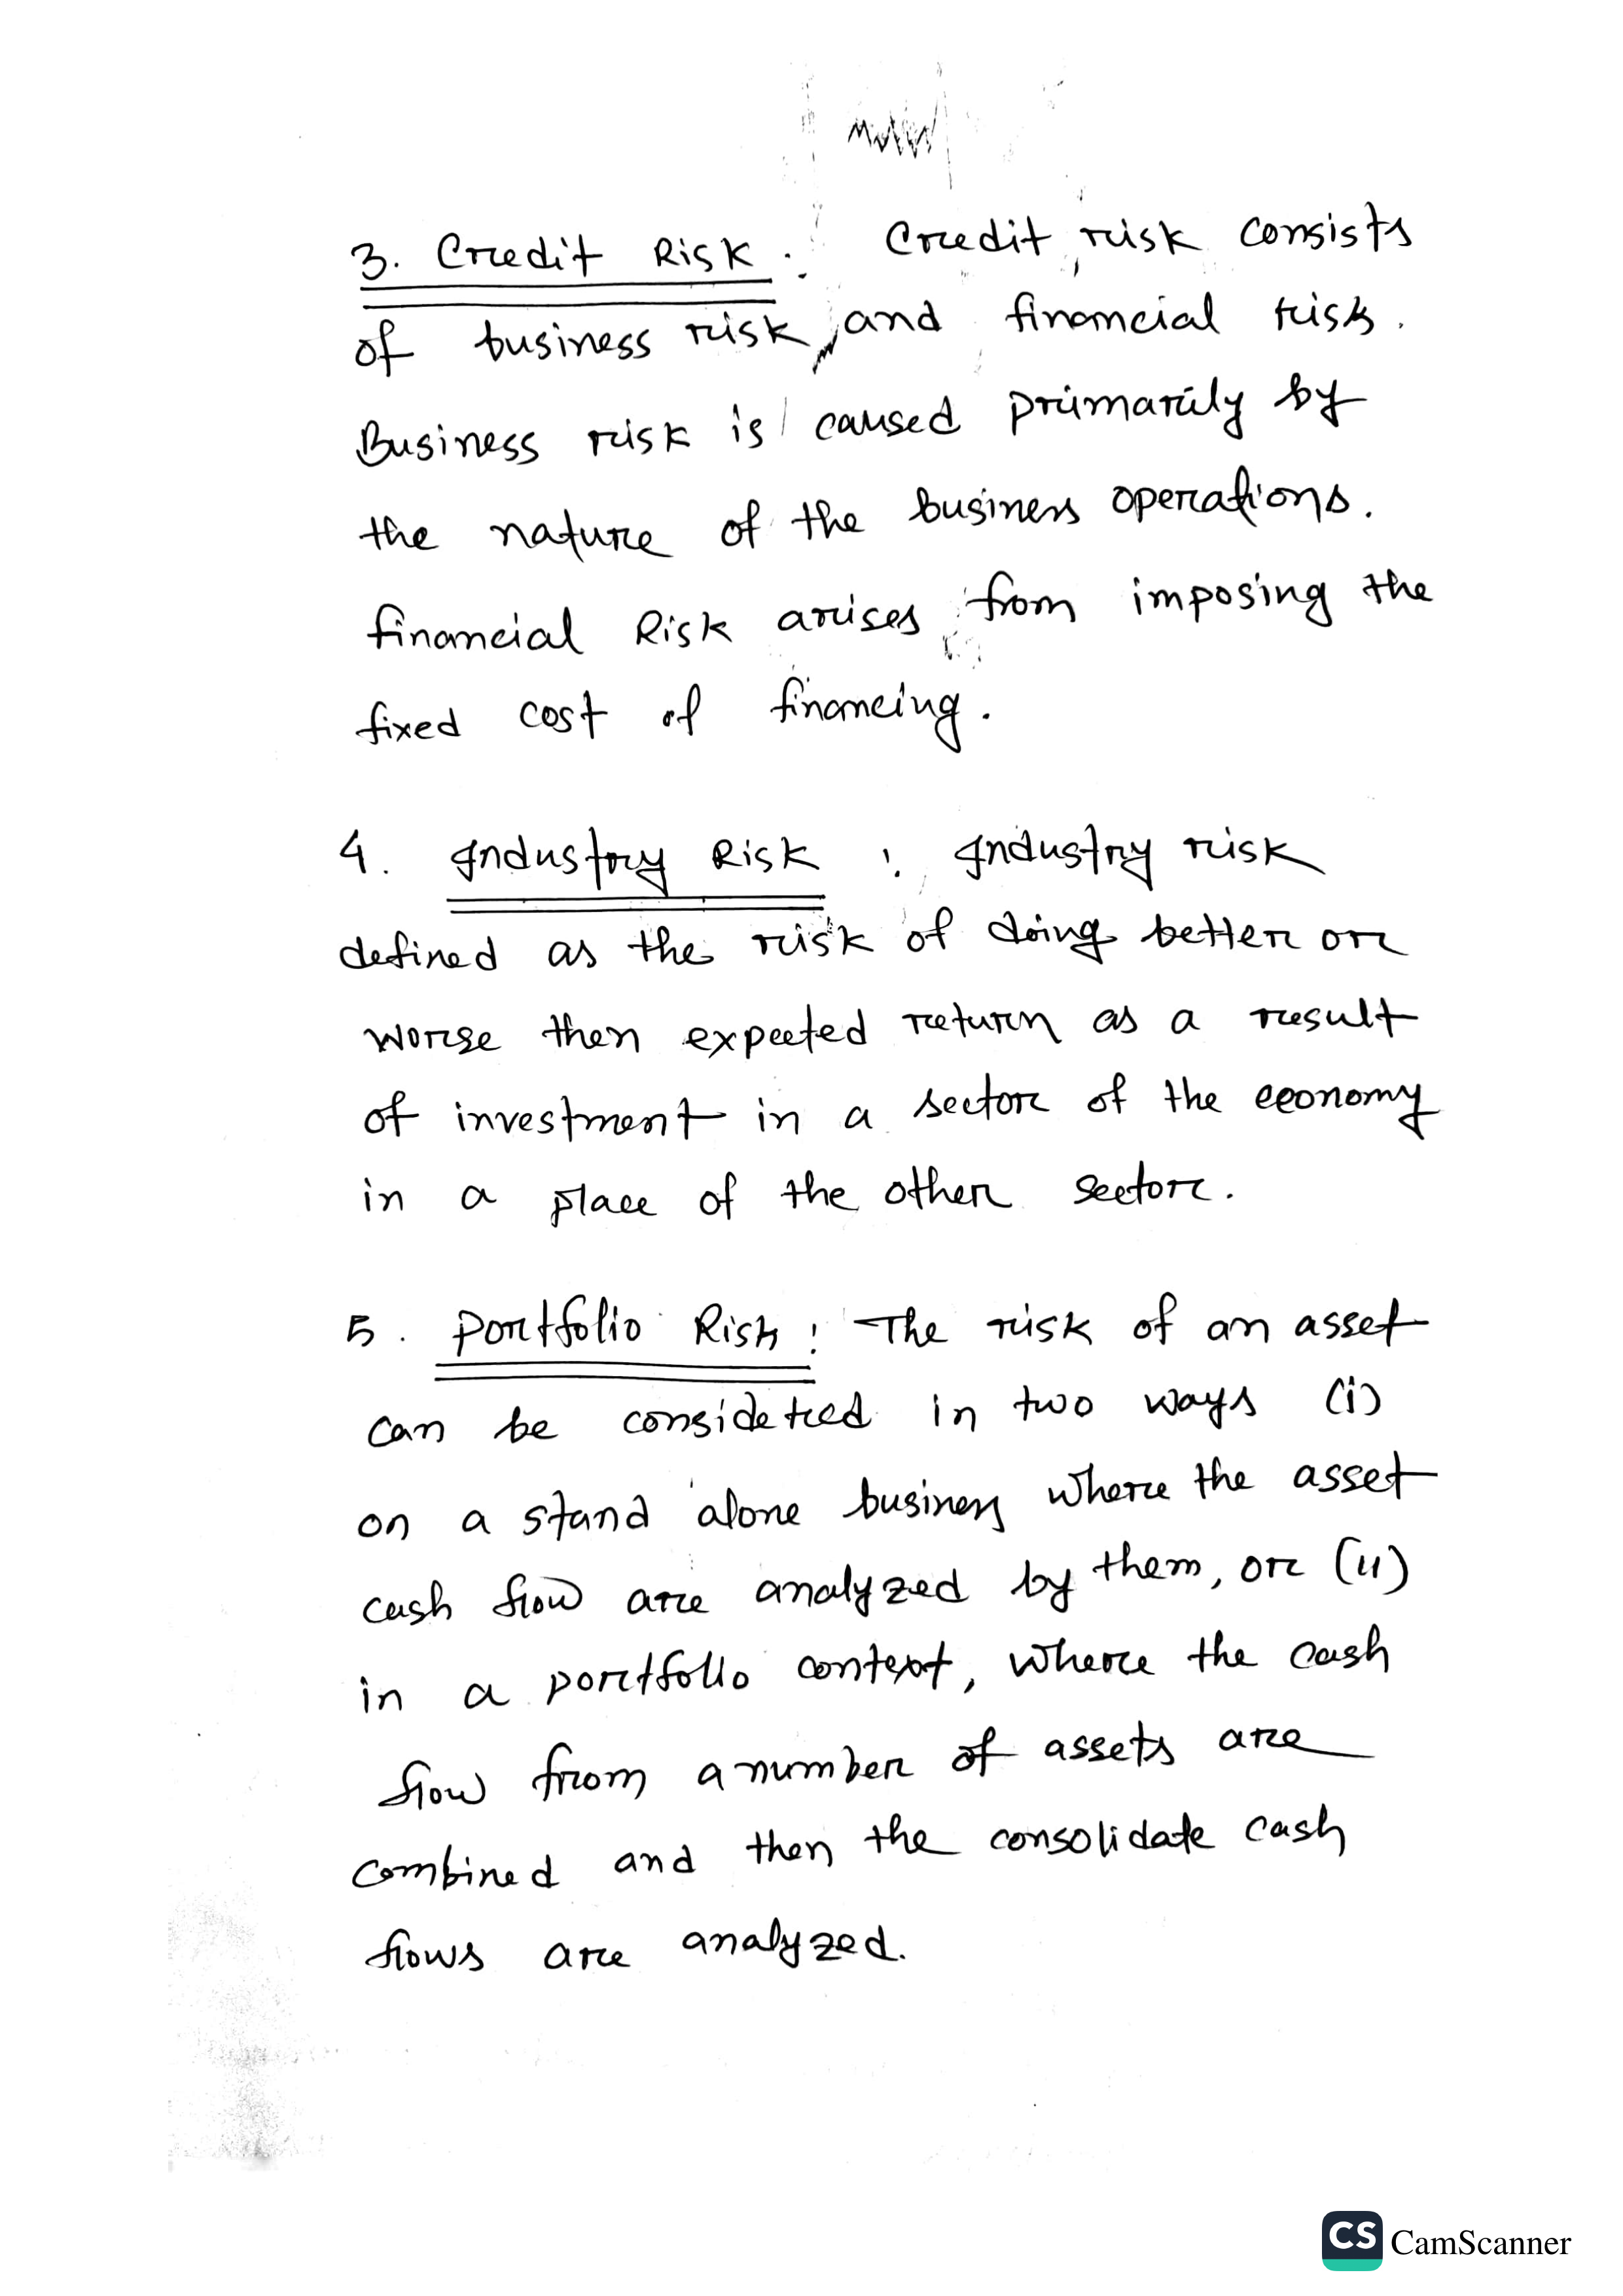 3. Credit Risk : Credit risk consists
of business risk and financial risk.
Business risk is caused primarily by
the nature of the business operations.
financial Risk arises from imposing the
fixed cost of financing.
4. Industry Risk : Industry risk
defined as the risk of doing better or
worse then expected return as a result
of investment in a sector of the economy
in a place of the other sector.
5. Portfolio Risk : The risk of an asset
can be considered in two ways (i)
on a stand alone business where the asset
cash flow are analyzed by them, or (ii)
in a portfolio context, where the cash
flow from a number of assets are
combined and then the consolidate cash
flows are analyzed.
CS CamScanner